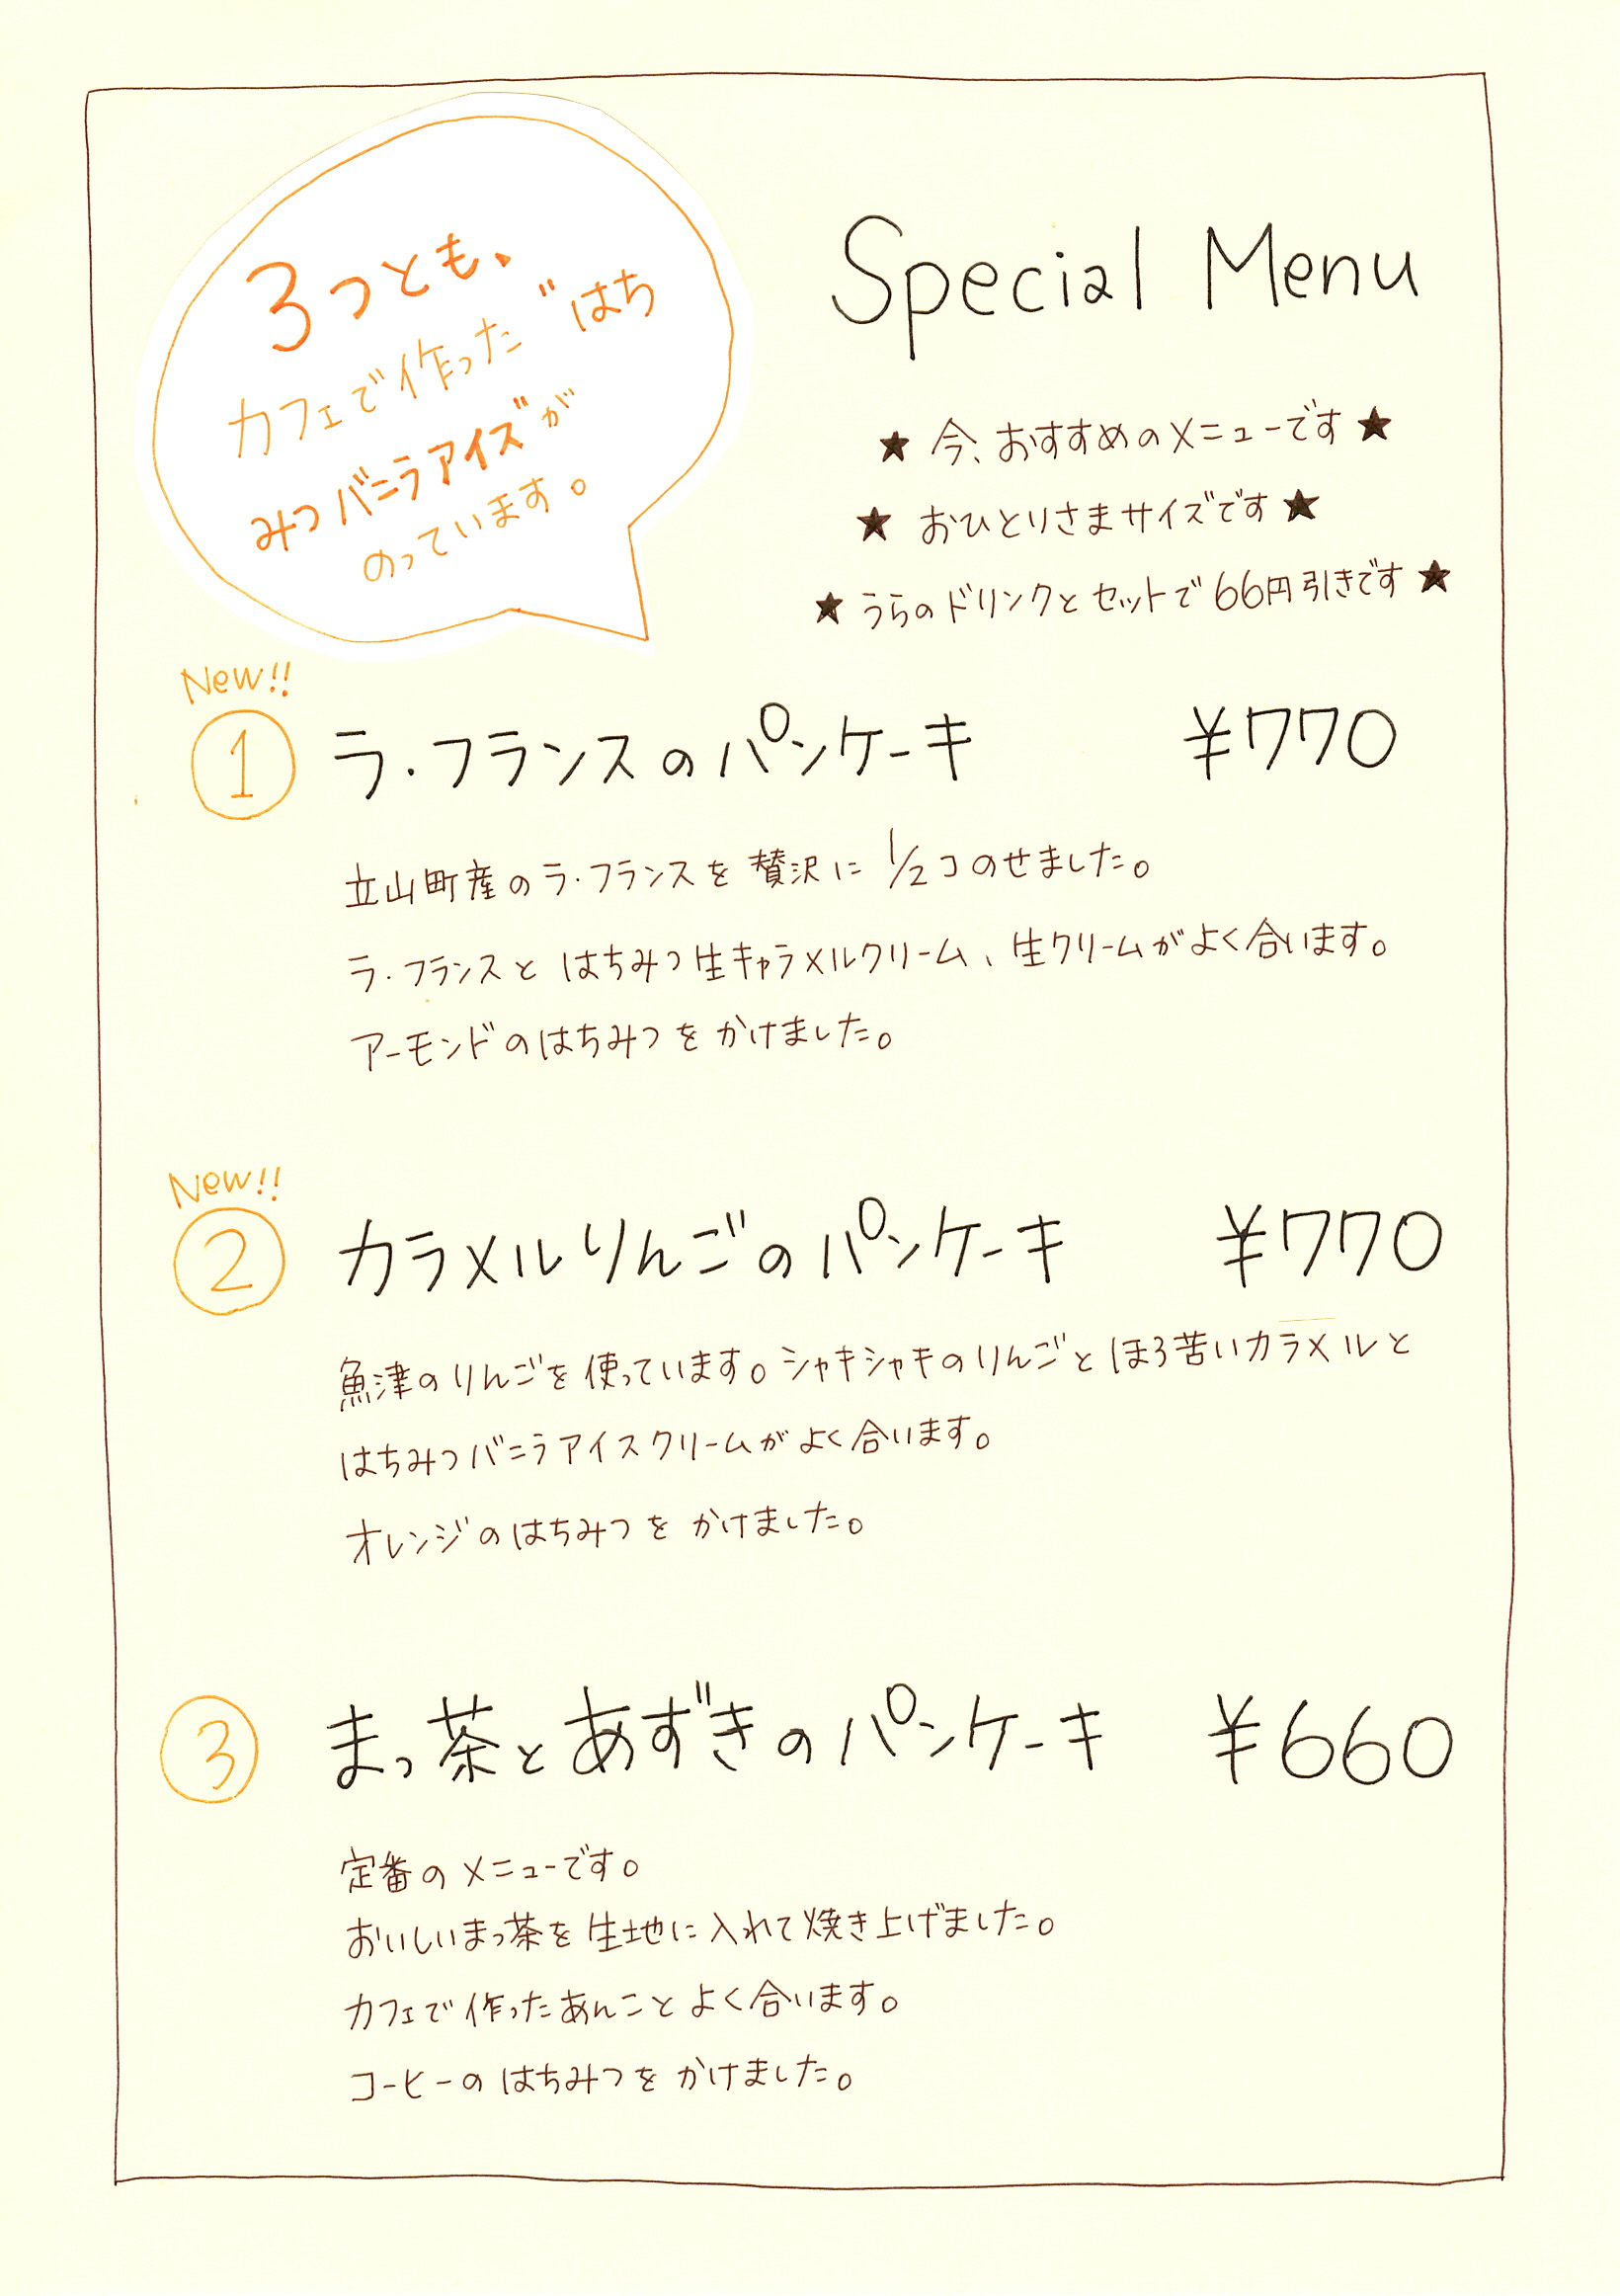 3つとも、
カフェで作った〝はち
みつバニラアイス〟が
のっています。
Special Menu
★ 今、おすすめのメニューです ★
★ おひとりさまサイズです ★
★ うらのドリンクとセットで66円引きです ★
New!!
① ラ・フランスのパンケーキ ¥770
立山町産のラ・フランスを贅沢に 1/2コのせました。
ラ・フランスと はちみつ生キャラメルクリーム、生クリームがよく合います。
アーモンドのはちみつを かけました。
New!!
② カラメルりんごのパンケーキ ¥770
魚津のりんごを使っています。シャキシャキのりんごと ほろ苦いカラメルと
はちみつバニラアイスクリームがよく合います。
オレンジのはちみつを かけました。
③ まっ茶とあずきのパンケーキ ¥660
定番のメニューです。
おいしいまっ茶を生地に入れて焼き上げました。
カフェで作ったあんこと よく合います。
コーヒーの はちみつを かけました。